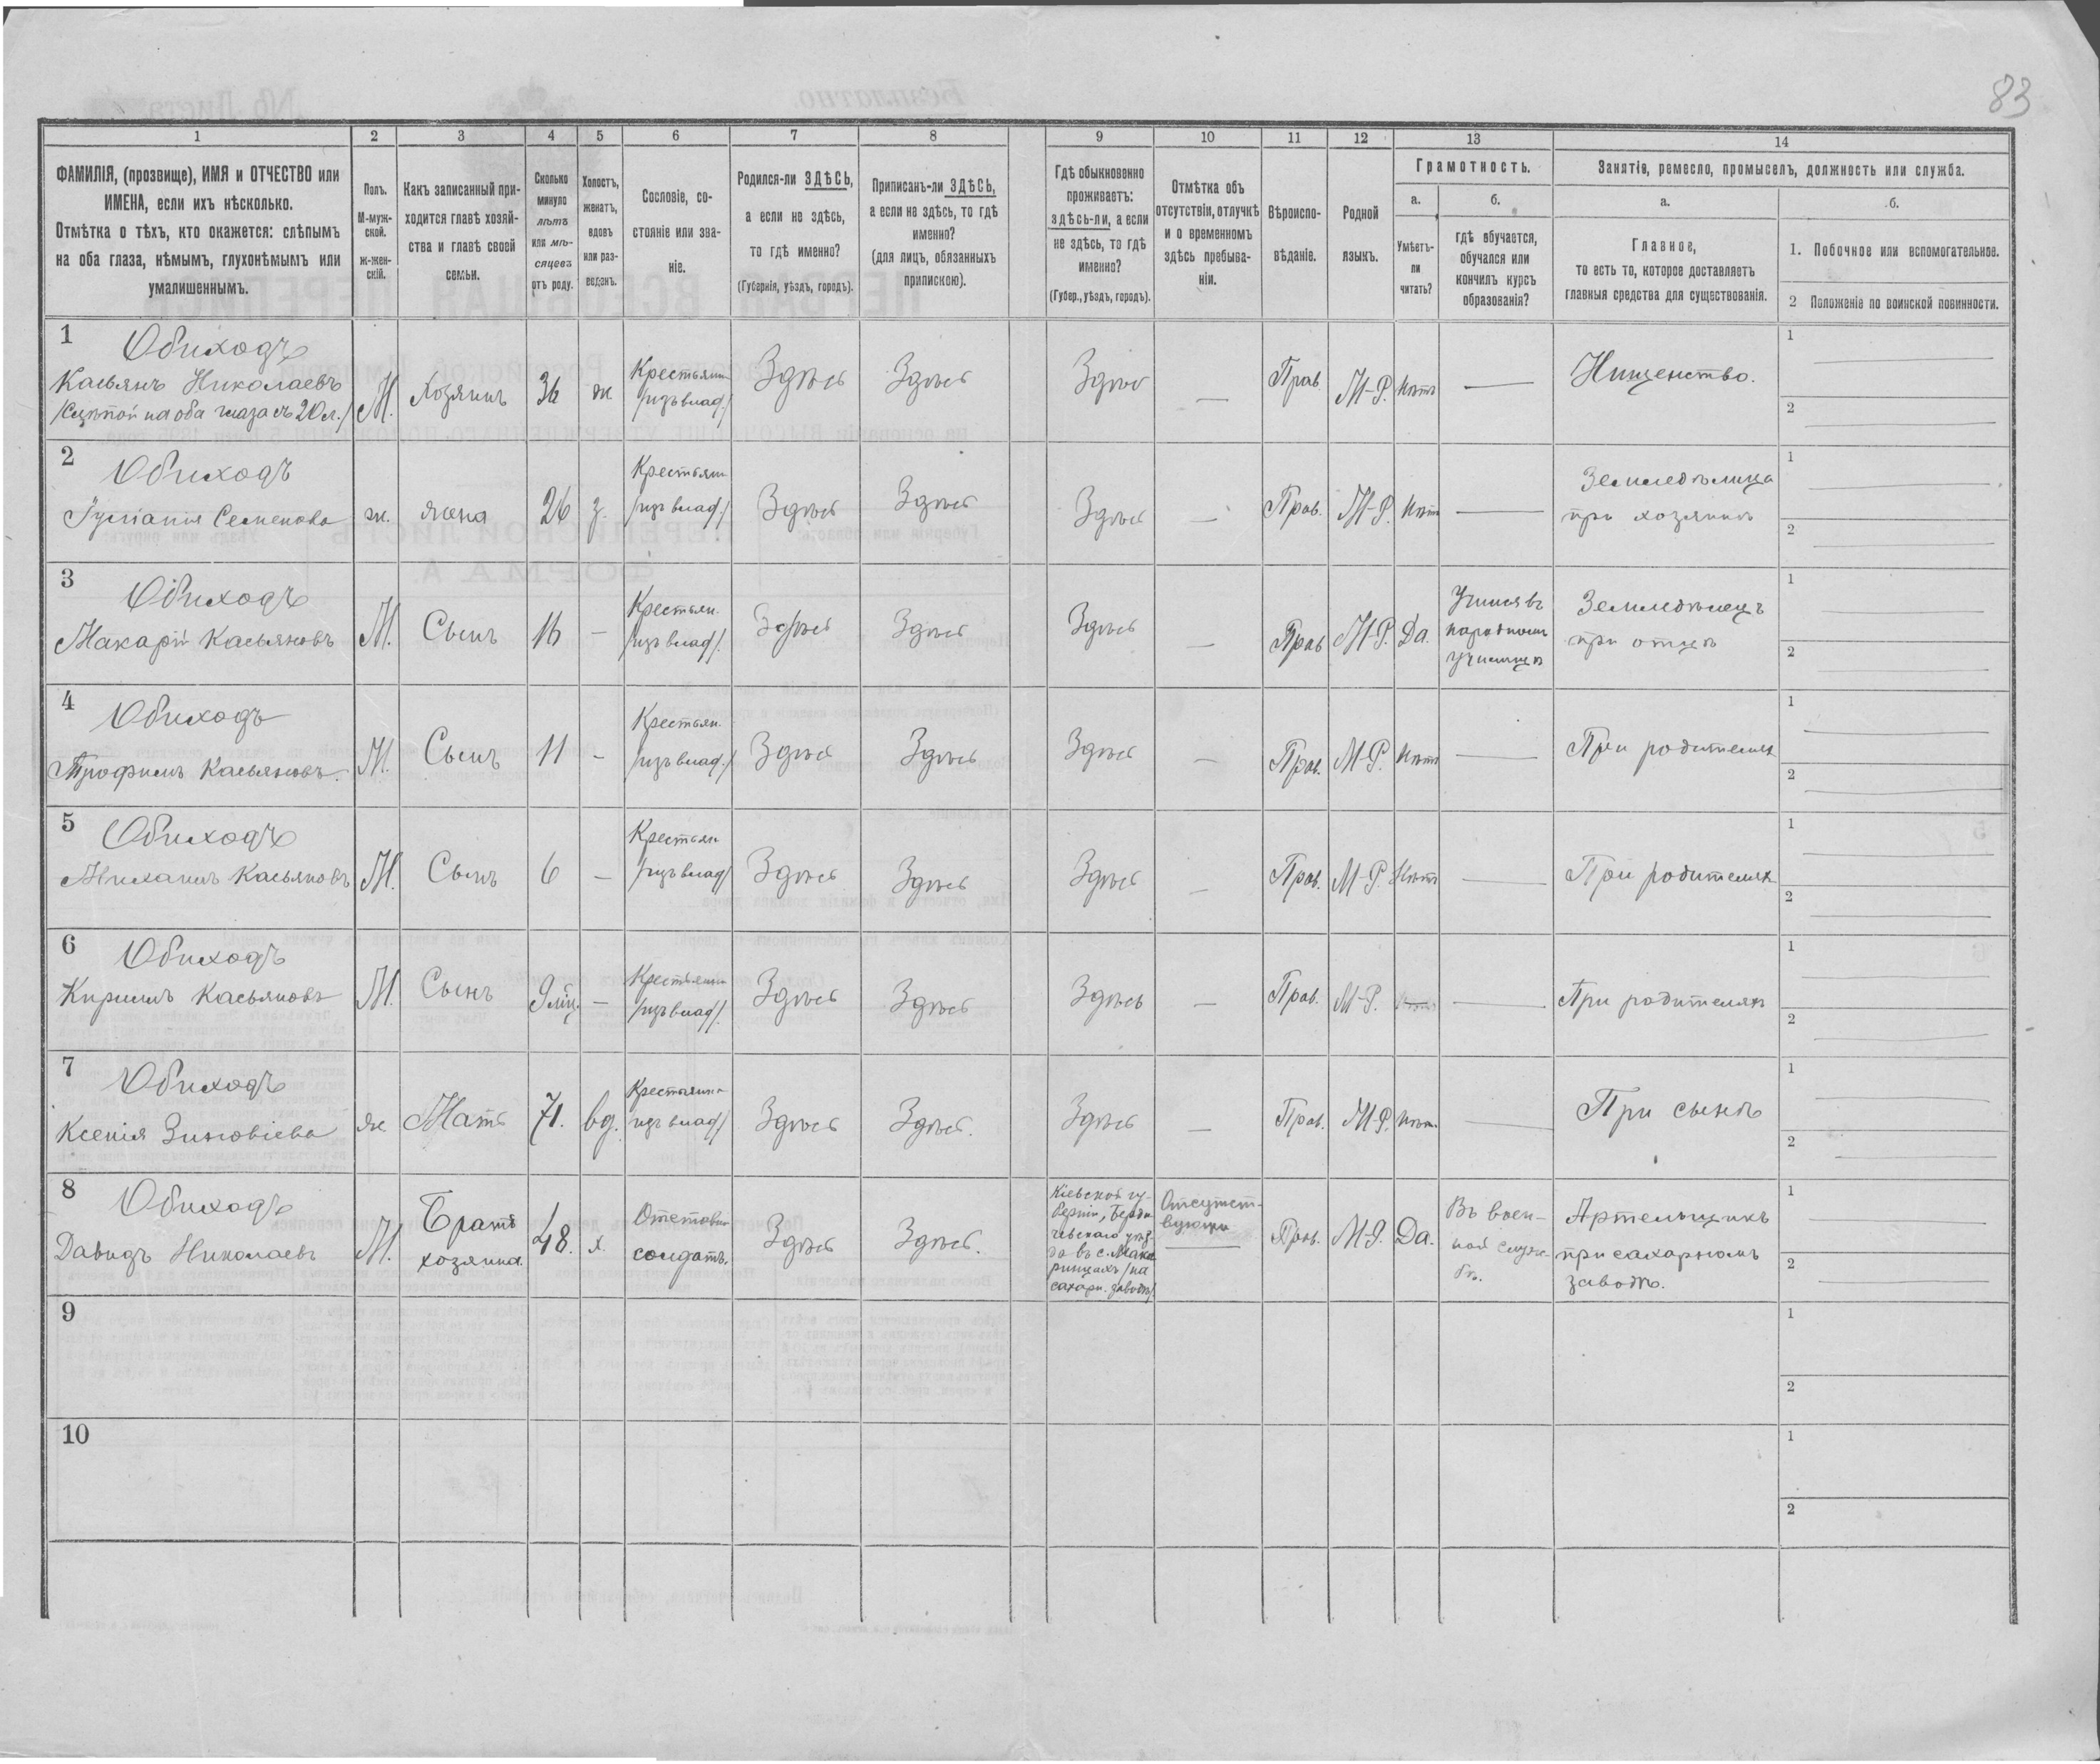 83
1 2 3 4 5 6 7 8 9 10 11 12 13 14
ФАМИЛІЯ, (прозвище), ИМЯ и ОТЧЕСТВО или
ИМЕНА, если ихъ нѣсколько.
Отмѣтка о тѣхъ, кто окажется: слѣпымъ
на оба глаза, нѣмымъ, глухонѣмымъ или
умалишеннымъ.
Полъ.
М-муж-
ской.
ж-жен-
скій.
Какъ записанный при-
ходится главѣ хозяй-
ства и главѣ своей
семьи.
Сколько
минуло
лѣтъ
или мѣ-
сяцевъ
отъ роду.
Холостъ,
женатъ,
вдовъ
или раз-
веденъ.
Сословіе, со-
стояніе или зва-
ніе.
Родился-ли ЗДѢСЬ,
а если не здѣсь,
то гдѣ именно?
(Губернія, уѣздъ, городъ).
Приписанъ-ли ЗДѢСЬ,
а если не здѣсь, то гдѣ
именно?
(для лицъ, обязанныхъ
припискою).
Гдѣ обыкновенно
проживаетъ:
здѣсь-ли, а если
не здѣсь, то гдѣ
именно?
(Губер., уѣздъ, городъ).
Отмѣтка объ
отсутствіи, отлучкѣ
и о временномъ
здѣсь пребыва-
ніи.
Вѣроиспо-
вѣданіе.
Родной
языкъ.
Грамотность.
а.
Умѣетъ-
ли
читать?
б.
гдѣ обучается,
обучался или
кончилъ курсъ
образованія?
Занятіе, ремесло, промыселъ, должность или служба.
а.
Главное,
то есть то, которое доставляетъ
главныя средства для существованія.
б.
1. Побочное или вспомогательное.
2 Положеніе по воинской повинности.
1
Обиходъ
Касьянъ Николаевъ
/Слѣпой на оба глаза съ 20 л./
М.
Хозяинъ
36
ж
Крестьянин
/изъ влад./
Здѣсь
Здѣсь
Здѣсь
—
Прав.
М-Р.
Нѣтъ
—
Нищенство.
1
2
2
Обиходъ
Семенова
ж.
жена
26
з.
Крестьян
/изъ влад./
Здѣсь
Здѣсь
Здѣсь
—
Прав.
М-Р.
Нѣтъ
—
Земледѣлица
при хозяинѣ
1
2
3
Обиходъ
Макарій Касьяновъ
М.
Сынъ
16
—
Крестьян.
/изъ влад/.
Здѣсь
Здѣсь
Здѣсь
—
Прав
М-Р.
Да.
Учился въ
народномъ
училищѣ
Земледѣлецъ
при отцѣ
1
2
4
Обиходъ
Трофимъ Касьяновъ.
М.
Сынъ
11
-
Крестьян.
/изъ влад./
Здѣсь
Здѣсь
Здѣсь
—
Прав.
М-Р.
Нѣтъ
—
При родителях
1
2
5
Обиходъ
Михаилъ Касьяновъ
М.
Сынъ
6
—
Крестьян
/изъ влад/
Здѣсь
Здѣсь
Здѣсь
—
Прав.
М-Р.
Нѣтъ
—
При родителях
1
2
6
Обиходъ
Кирилъ Касьяновъ
М.
Сынъ
9 мѣц.
—
Крестьянин
/изъ влад/.
Здѣсь
Здѣсь
Здѣсь
—
Прав.
М-Р.
—
—
При родителях
1
2
7
Обиходъ
Ксенія Зиновіева
ж.
Мать
71.
вд.
Крестьянка
изъ влад/
Здѣсь
Здѣсь.
Здѣсь
—
Прав.
М-Р.
Нѣт.
—
При сынѣ
1
2
8
Обиходъ
Давидъ Николаевъ
М.
Братъ
хозяина.
48.
х.
Отставн
солдатъ.
Здѣсь
Здѣсь.
Кіевской гу-
берніи, Берди-
чевскаго уѣз-
да въ с. Мака
рищахъ /на
сахарн. заводѣ/.
Отсутст-
вующій
—
Прав.
М-Р.
Да.
Въ воен-
ной служ-
бѣ.
Артельщикъ
при сахарномъ
заводѣ.
1
2
9
1
2
10
1
2